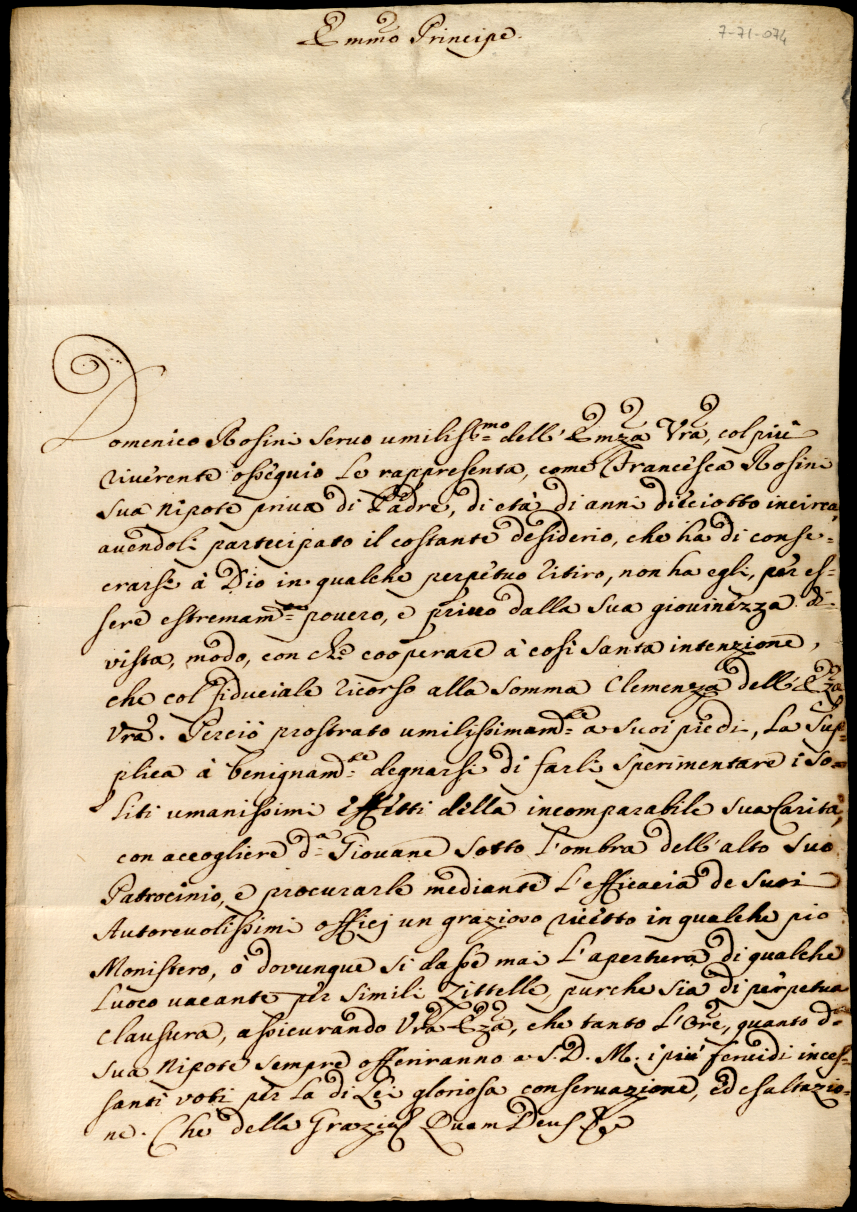 Emmo Principe.
7-71-074
Domenico Rosini servo umilissmo dell' Emza Vra, col più
riverente ossequio Le rappresenta, come Francesca Rosini
sua nipote priva di Padre, di età di anni diciotto incirca,
avendoli partecipato il costante desiderio, che ha di conse-
crarsi à Dio in qualche perpetuo ritiro, non ha egli, per es-
sere estremamte povero, e privo dalla sua giovinezza di
vista, modo, con che cooperare à così santa intenzione,
che col fiduciale ricorso alla somma Clemenza dell' Eza
Vra. Perciò prostrato umilissimamte a suoi piedi, La sup-
plica à benignamte degnarsi di farli sperimentare i so-
liti umanissimi effetti della incomparabile sua Carità,
con accogliere da Giovane sotto l'ombra dell' alto suo
Patrocinio, e procurarle mediante l'efficacia de suoi
Autorevolissimi officj un grazioso ricetto in qualche pio
Monistero, ò dovunque si dasse mai l'apertura di qualche
Luoco vacante per simili Zittelle, purche sia di perpetua
Clausura, assicurando Vra Eza, che tanto l'Ore, quanto da
sua nipote sempre offeriranno a S. D. M. i più fervidi inces-
santi voti per La di Lei gloriosa conservazione, ed esaltazio-
ne. Che della Grazia Quam Deus &c